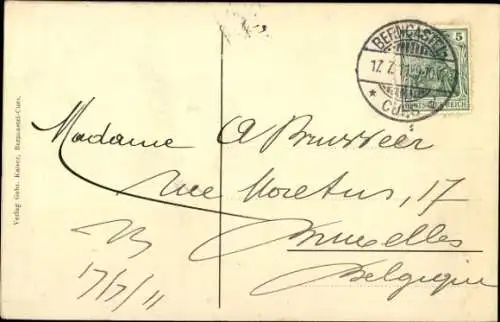 BERNCASTEL
17.7.11
CUES
5
DEUTSCHES REICH
Madame A Brusseer
rue Moretus, 17
Bruxelles
Belgique
17/7/11
Verlag Gebr. Kaiser, Berncastel-Cues.